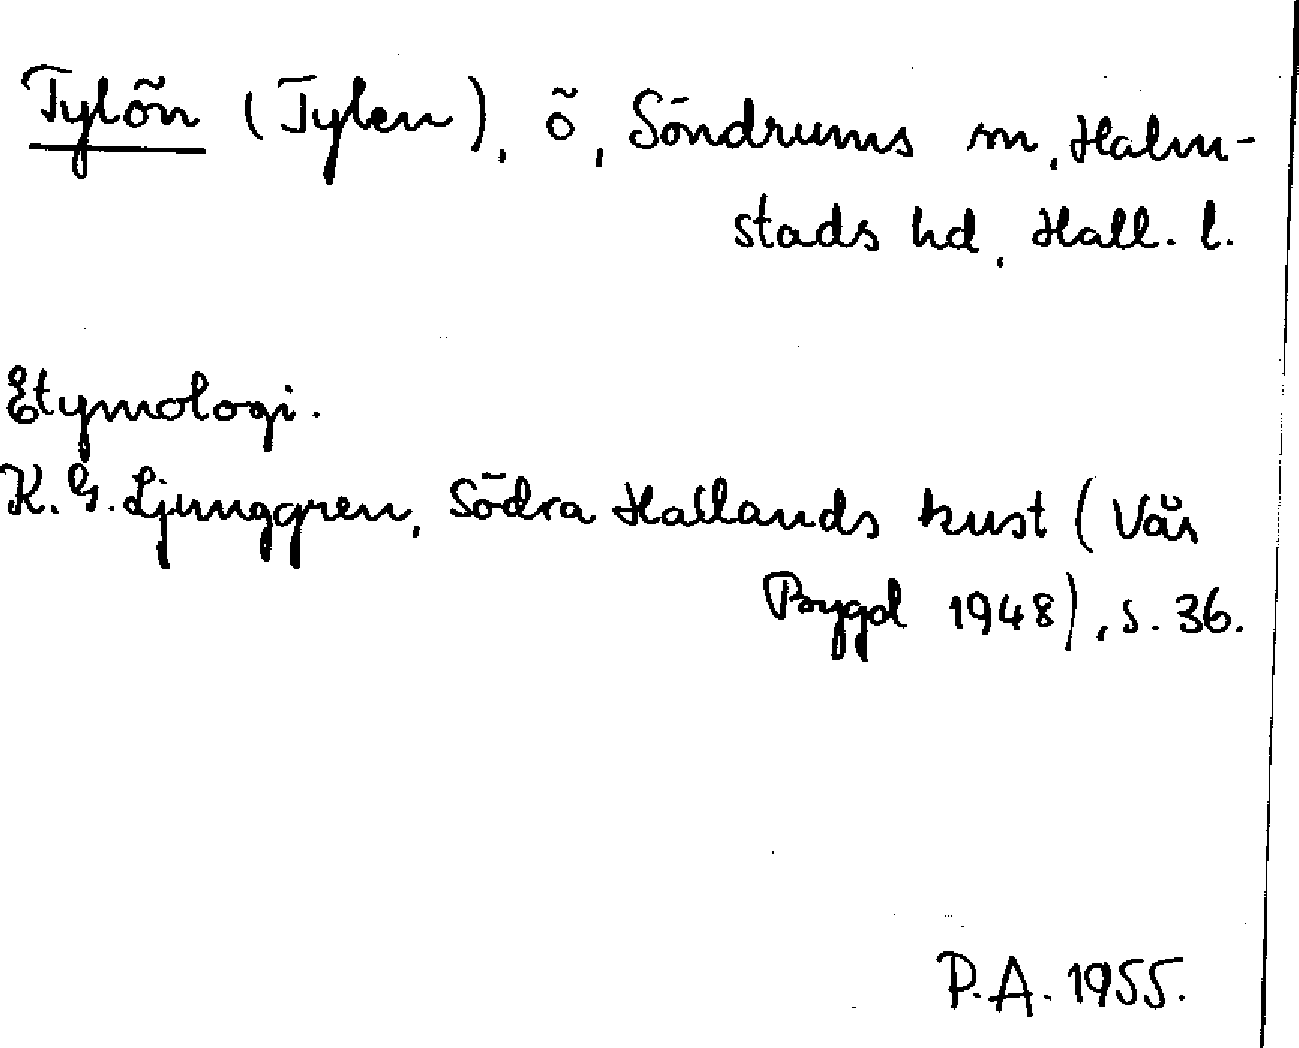 Tylön (Tylen), ö, Söndrums sn, Halm-
stads hd, Hall. l.
Etymologi.
K. G. Ljunggren, Södra Hallands kust (Vår
Bygd 1948), s. 36.
P.A. 1955.